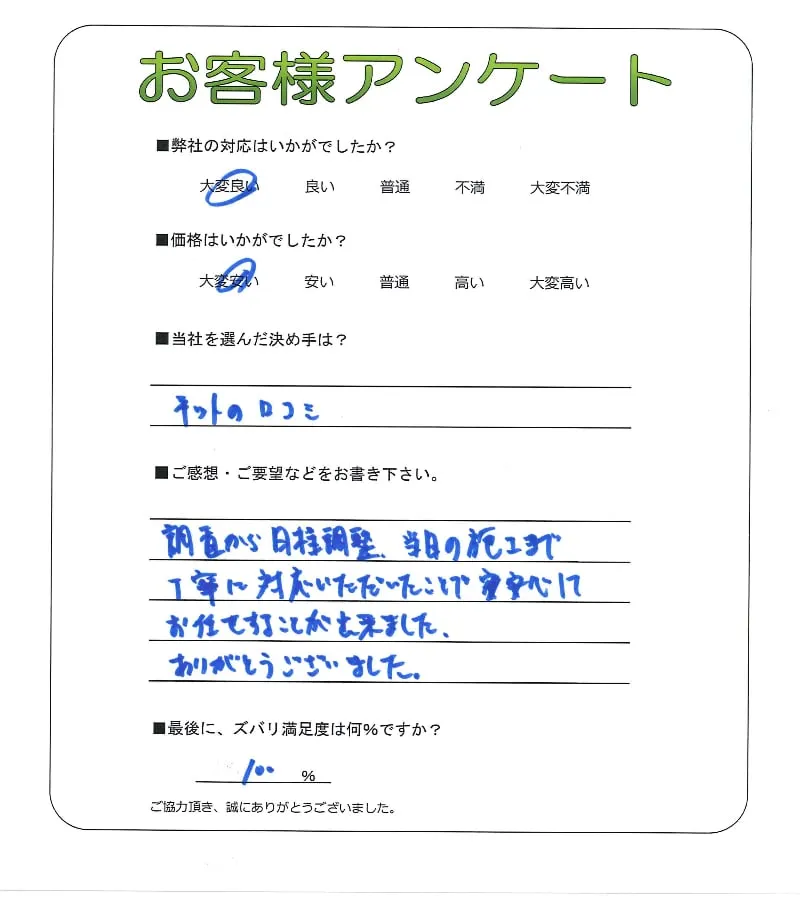 お客様アンケート
■弊社の対応はいかがでしたか？
大変良い 良い 普通 不満 大変不満
■価格はいかがでしたか？
大変安い 安い 普通 高い 大変高い
■当社を選んだ決め手は？
ネットの口コミ
■ご感想・ご要望などをお書き下さい。
調査から日程調整、当日の施工まで
丁寧に対応いただいたことで安心して
お任せすることが出来ました、
ありがとうございました。
■最後に、ズバリ満足度は何％ですか？
100 ％
ご協力頂き、誠にありがとうございました。